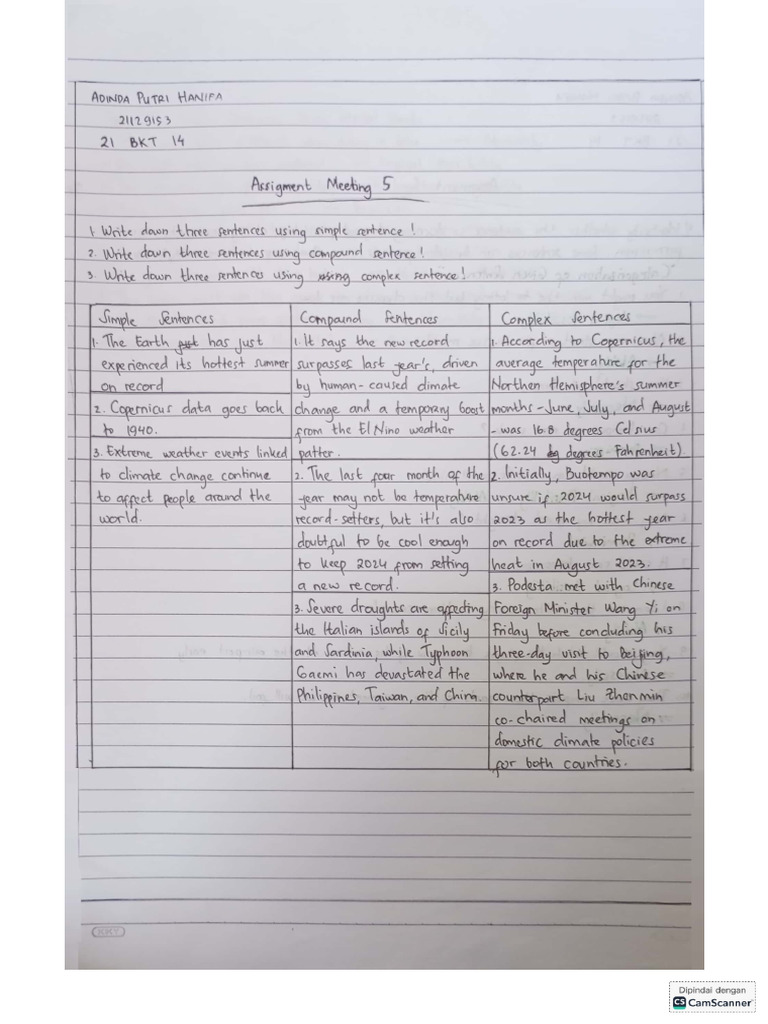 ADINDA PUTRI HANIFA
21129153
21 BKT 14
Assigment Meeting 5
1. Write down three sentences using simple sentence !
2. Write down three sentences using compound sentence !
3. Write down three sentences using using complex sentence !
Simple Sentences
1. The Earth just has just
experienced its hottest summer
on record
2. Copernicus data goes back
to 1940.
3. Extreme weather events linked
to climate change continue
to affect people around the
world.
Compound Sentences
1. It says the new record
surpasses last year's, driven
by human-caused climate
change and a temporary boost
from the El Nino weather
patter.
2. The last four month of the
year may not be temperature
record-setters, but it's also
doubtful to be cool enough
to keep 2024 from setting
a new record.
3. Severe droughts are affecting
the Italian islands of Sicily
and Sardinia, while Typhoon
Gaemi has devastated the
Philippines, Taiwan, and China.
Complex Sentences
1. According to Copernicus, the
average temperature for the
Northen Hemisphere's summer
months - June, July, and August
- was 16.8 degrees Celsius
(62.24 degrees Fahrenheit)
2. Initially, Buotempo was
unsure if 2024 would surpass
2023 as the hottest year
on record due to the extreme
heat in August 2023.
3. Podesta met with Chinese
Foreign Minister Wang Yi on
Friday before concluding his
three-day visit to Beijing,
where he and his Chinese
counterpart Liu Zhenmin
co-chaired meetings on
domestic climate policies
for both countries.
KKY
Dipindai dengan
CS CamScanner